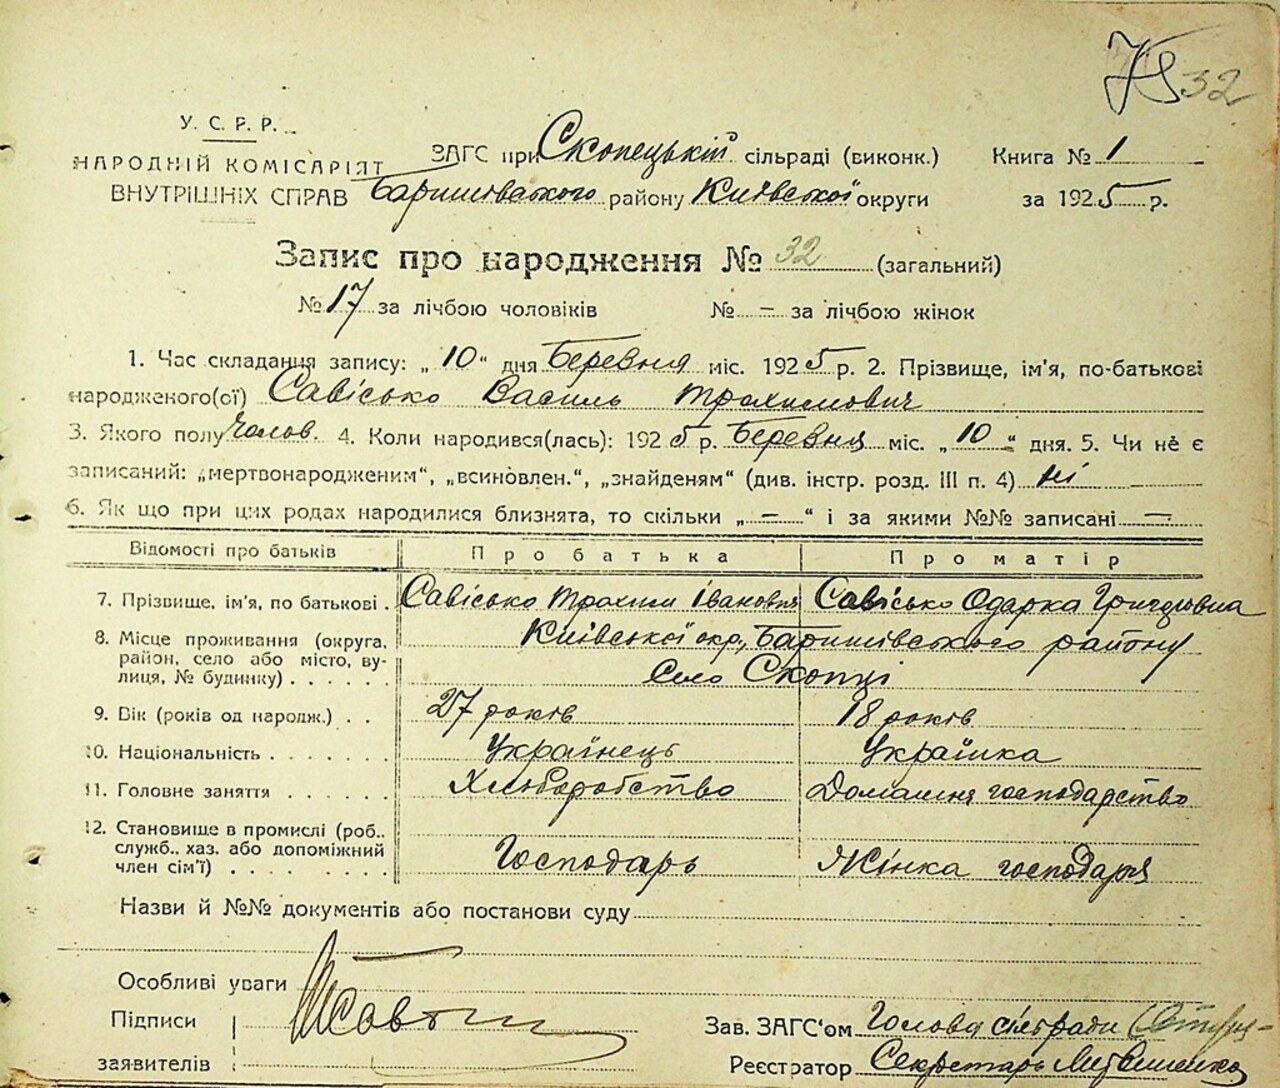 32
У. С. Р. Р.
НАРОДНІЙ КОМІСАРІЯТ
ВНУТРІШНІХ СПРАВ
ЗАГС при Скопецькій сільраді (виконк.) Книга № 1
Баришівського району Київської округи за 1925 р.
Запис про народження № 32 (загальний)
№ 17 за лічбою чоловіків № — за лічбою жінок
1. Час складання запису: „10“ дня Березня міс. 1925 р. 2. Прізвище, ім'я, по-батькові
народженого(ої) Савісько Василь Трохимович
3. Якого полу Чолов. 4. Коли народився(лась): 1925 р. Березня міс. „10“ дня. 5. Чи не є
записаний: „мертвонародженим“, „всиновлен.“, „знайденям“ (див. інстр. розд. III п. 4) ні
6. Як що при цих родах народилися близнята, то скільки „—“ і за якими №№ записані —
Відомості про батьків Про батька Про матір
7. Прізвище, ім'я, по батькові . Савісько Трохим Іванович Савісько Одарка Григоровна
8. Місце проживання (округа, район, село або місто, вулиця, № будинку) . . . . . . Київської окр., Баришівського району
село Скопці
9. Вік (років од народж.) . . 27 років 18 років
10. Національність . . . . . . . Українець Українка
11. Головне заняття . . . . . . Хліборобство Домашня господарство
12. Становище в промислі (роб., служб., хаз. або допоміжний член сім'ї) . . . . . . . . Господарь Жінка господаря
Назви й №№ документів або постанови суду
Особливі уваги
Підписи
заявителів
Зав. ЗАГС'ом Голова сільради
Реєстратор Секретарь Литвиненко